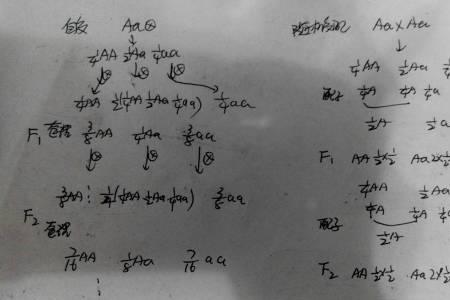 自交 Aa⊗
1/4AA 1/2Aa 1/4aa
⊗ ⊗ ⊗
1/4AA 1/2(1/4AA 1/2Aa 1/4aa) 1/4aa
F₁ 整理 3/8AA 1/4Aa 3/8aa
⊗ ⊗ ⊗
3/8AA 1/4(1/4AA 1/2Aa 1/4aa) 3/8aa
F₂ 整理
7/16AA 1/8Aa 7/16aa
随机交配 Aa×Aa
1/4AA 1/2Aa
配子 1/4A 1/4A 1/4a
1/2A 1/2a
F₁ AA 1/2×1/2 Aa 2×1/2
1/4AA 1/2Aa
配子 1/4A 1/4A 1/4
1/2A
F₂ AA 1/2×1/2 Aa 2×1/2